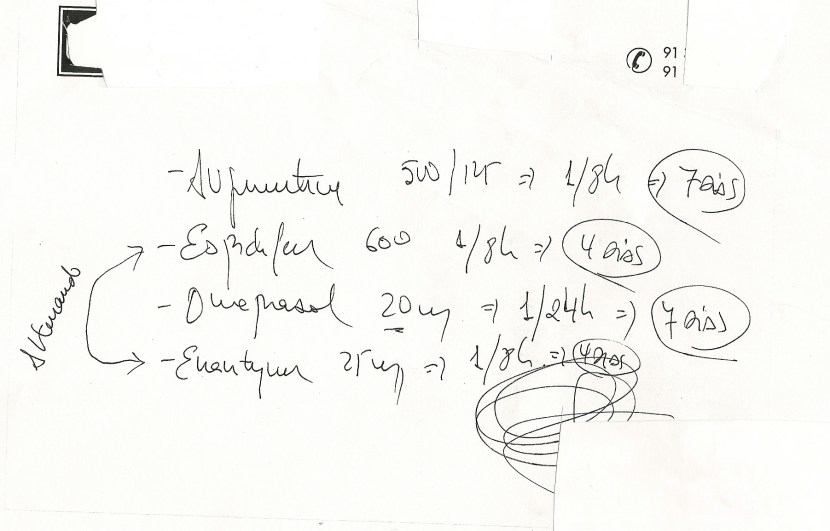 91
91
- Augmentine 500/125 => 1/8h => 7 dias
- Espidifen 600 1/8h => 4 dias
- Omeprasol 20 mg => 1/24h => 7 dias
- Enantyum 25 mg => 1/8h => 4 dias
Alternando